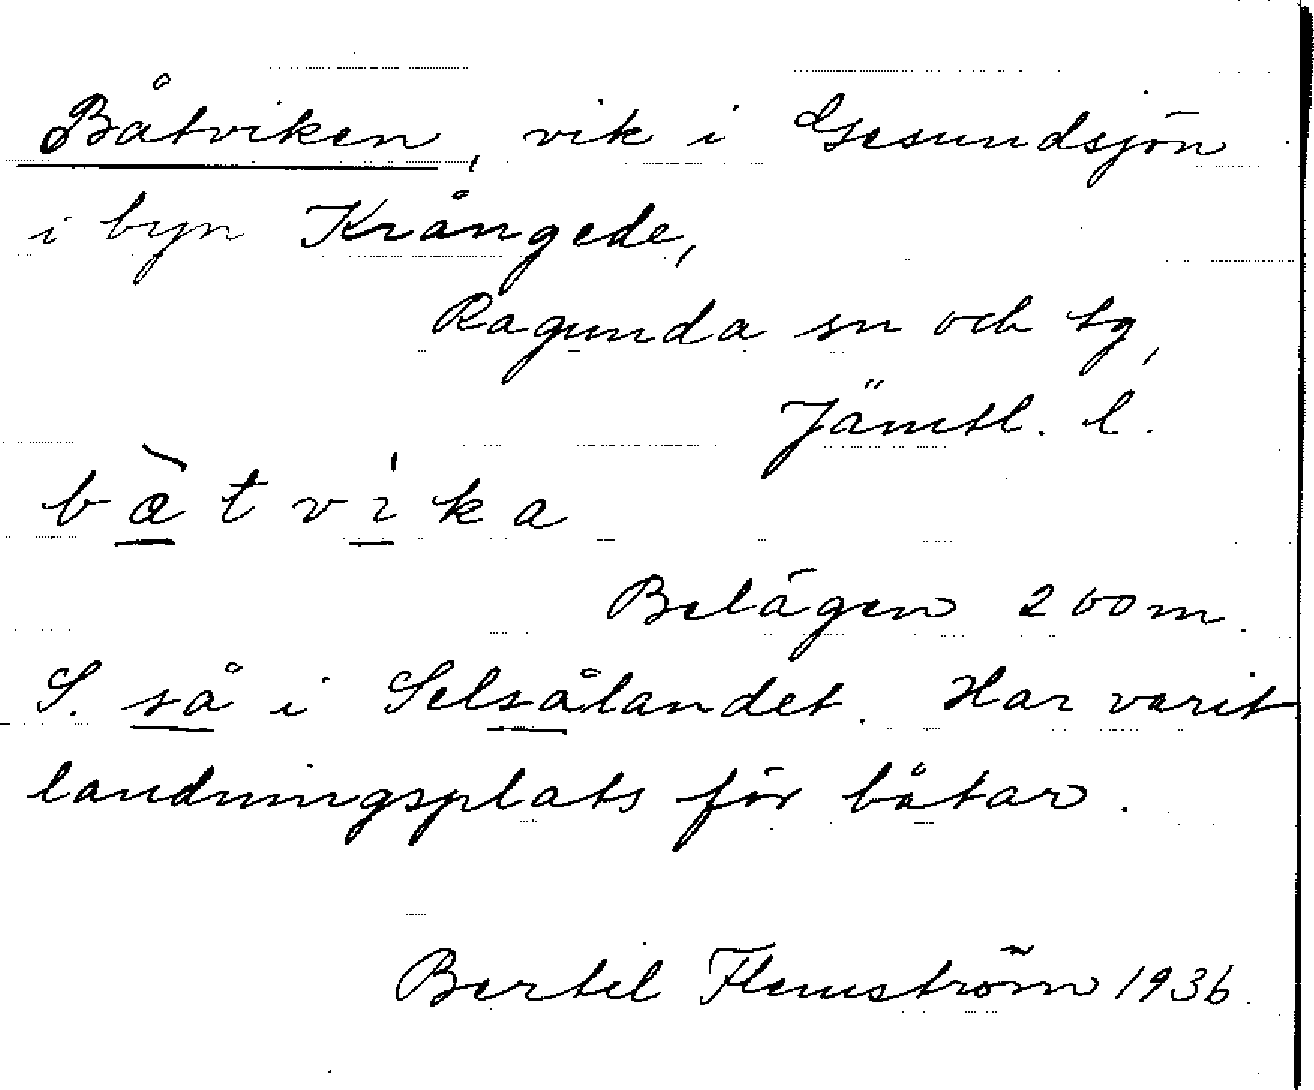 Båtviken, vik i Gesundsjön
i byn Krångede,
Ragunda sn och tg,
Jämtl. l.
bæ̀tvi̍ka
Belägen 200 m.
S. så i Selsålandet. Har varit
landningsplats för båtar.
Bertil Flemström 1936.